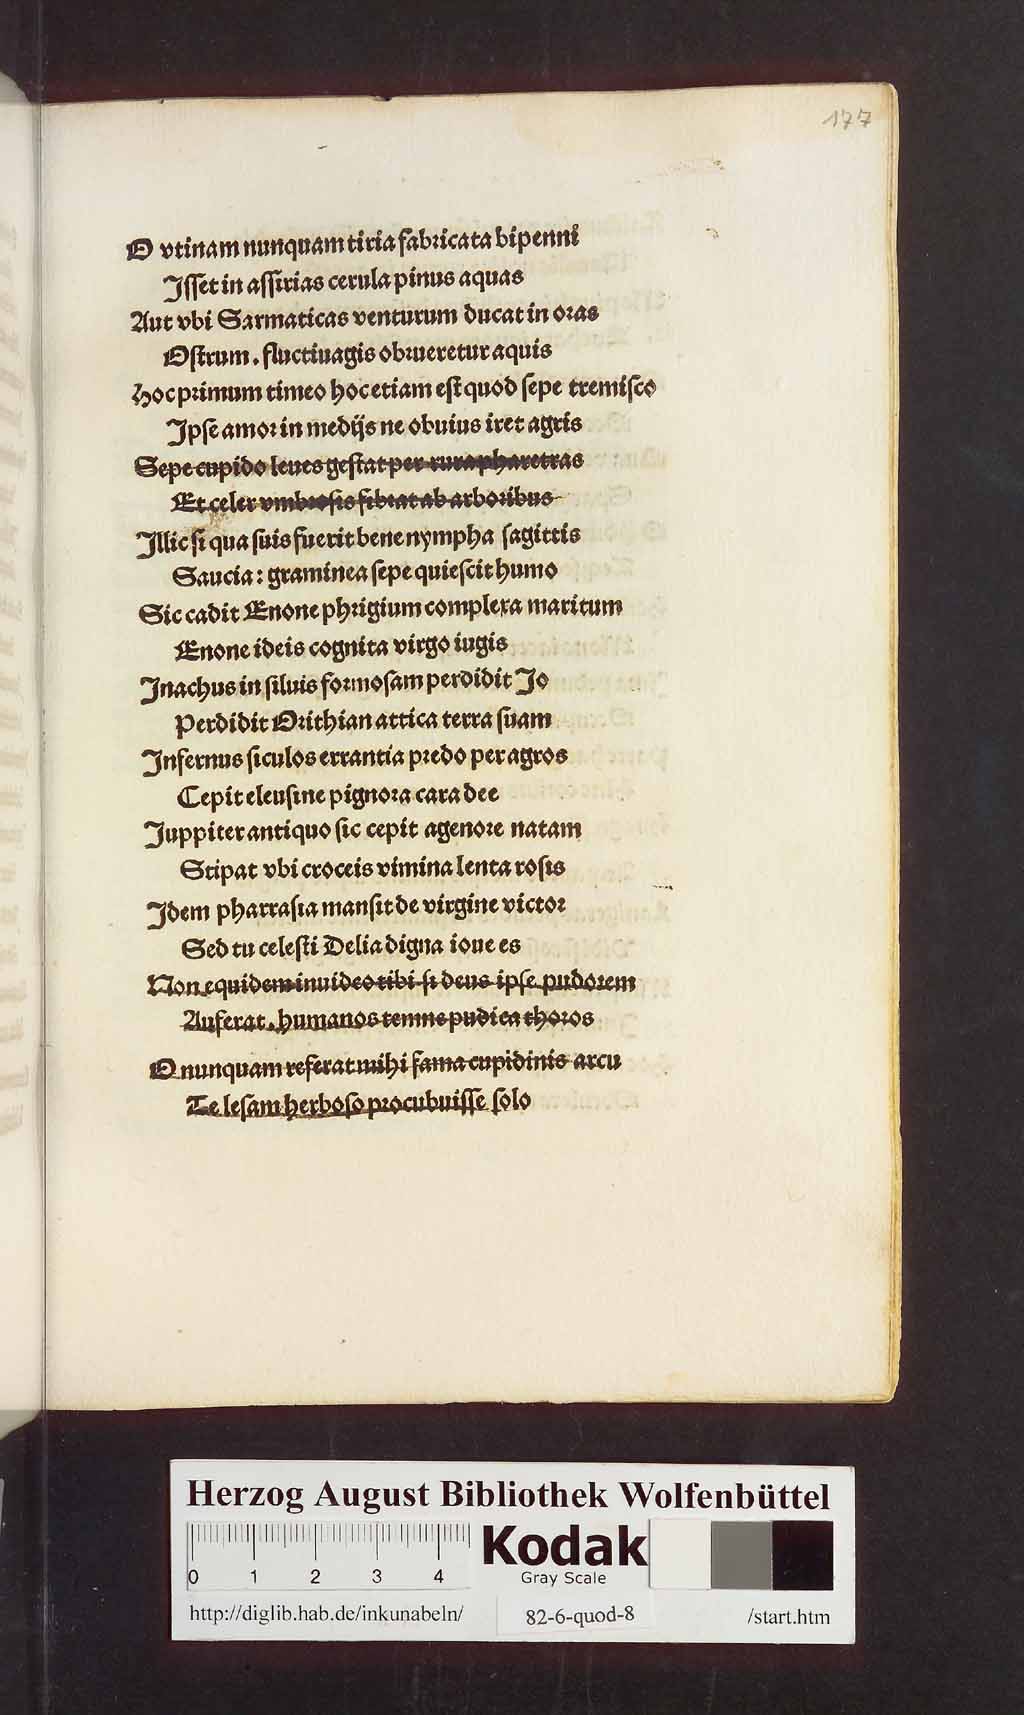 177
O vtinam nunquam tiria fabricata bipenni
Isset in assirias cerula pinus aquas
Aut vbi Sarmaticas venturum ducat in oras
Ostrum. fluctiuagis obrueretur aquis
Hoc primum timeo hoc etiam est quod sepe tremisco
Ipse amor in medijs ne obuius iret agris
Sepe cupido leues gestat per rura pharetras
Et celer vmbrosis sibrat ab arboribus
Illic si qua suis fuerit bene nympha sagittis
Saucia: graminea sepe quiescit humo
Sic cadit Enone phrigium complexa maritum
Enone ideis cognita virgo iugis
Inachus in siluis formosam perdidit Io
Perdidit Orithian attica terra suam
Infernus siculos errantia predo per agros
Cepit eleusine pignora cara dee
Iuppiter antiquo sic cepit agenore natam
Stipat vbi croceis vimina lenta rosis
Idem pharrasia mansit de virgine victor
Sed tu celesti Delia digna ioue es
Non equidem inuideo tibi si deus ipse pudorem
Auferat. humanos temne pudica thoros
O nunquam referat mihi fama cupidinis arcu
Te lesam herboso procubuisse solo
Herzog August Bibliothek Wolfenbüttel
0 1 2 3 4
Kodak
Gray Scale
http://diglib.hab.de/inkunabeln/ 82-6-quod-8 /start.htm